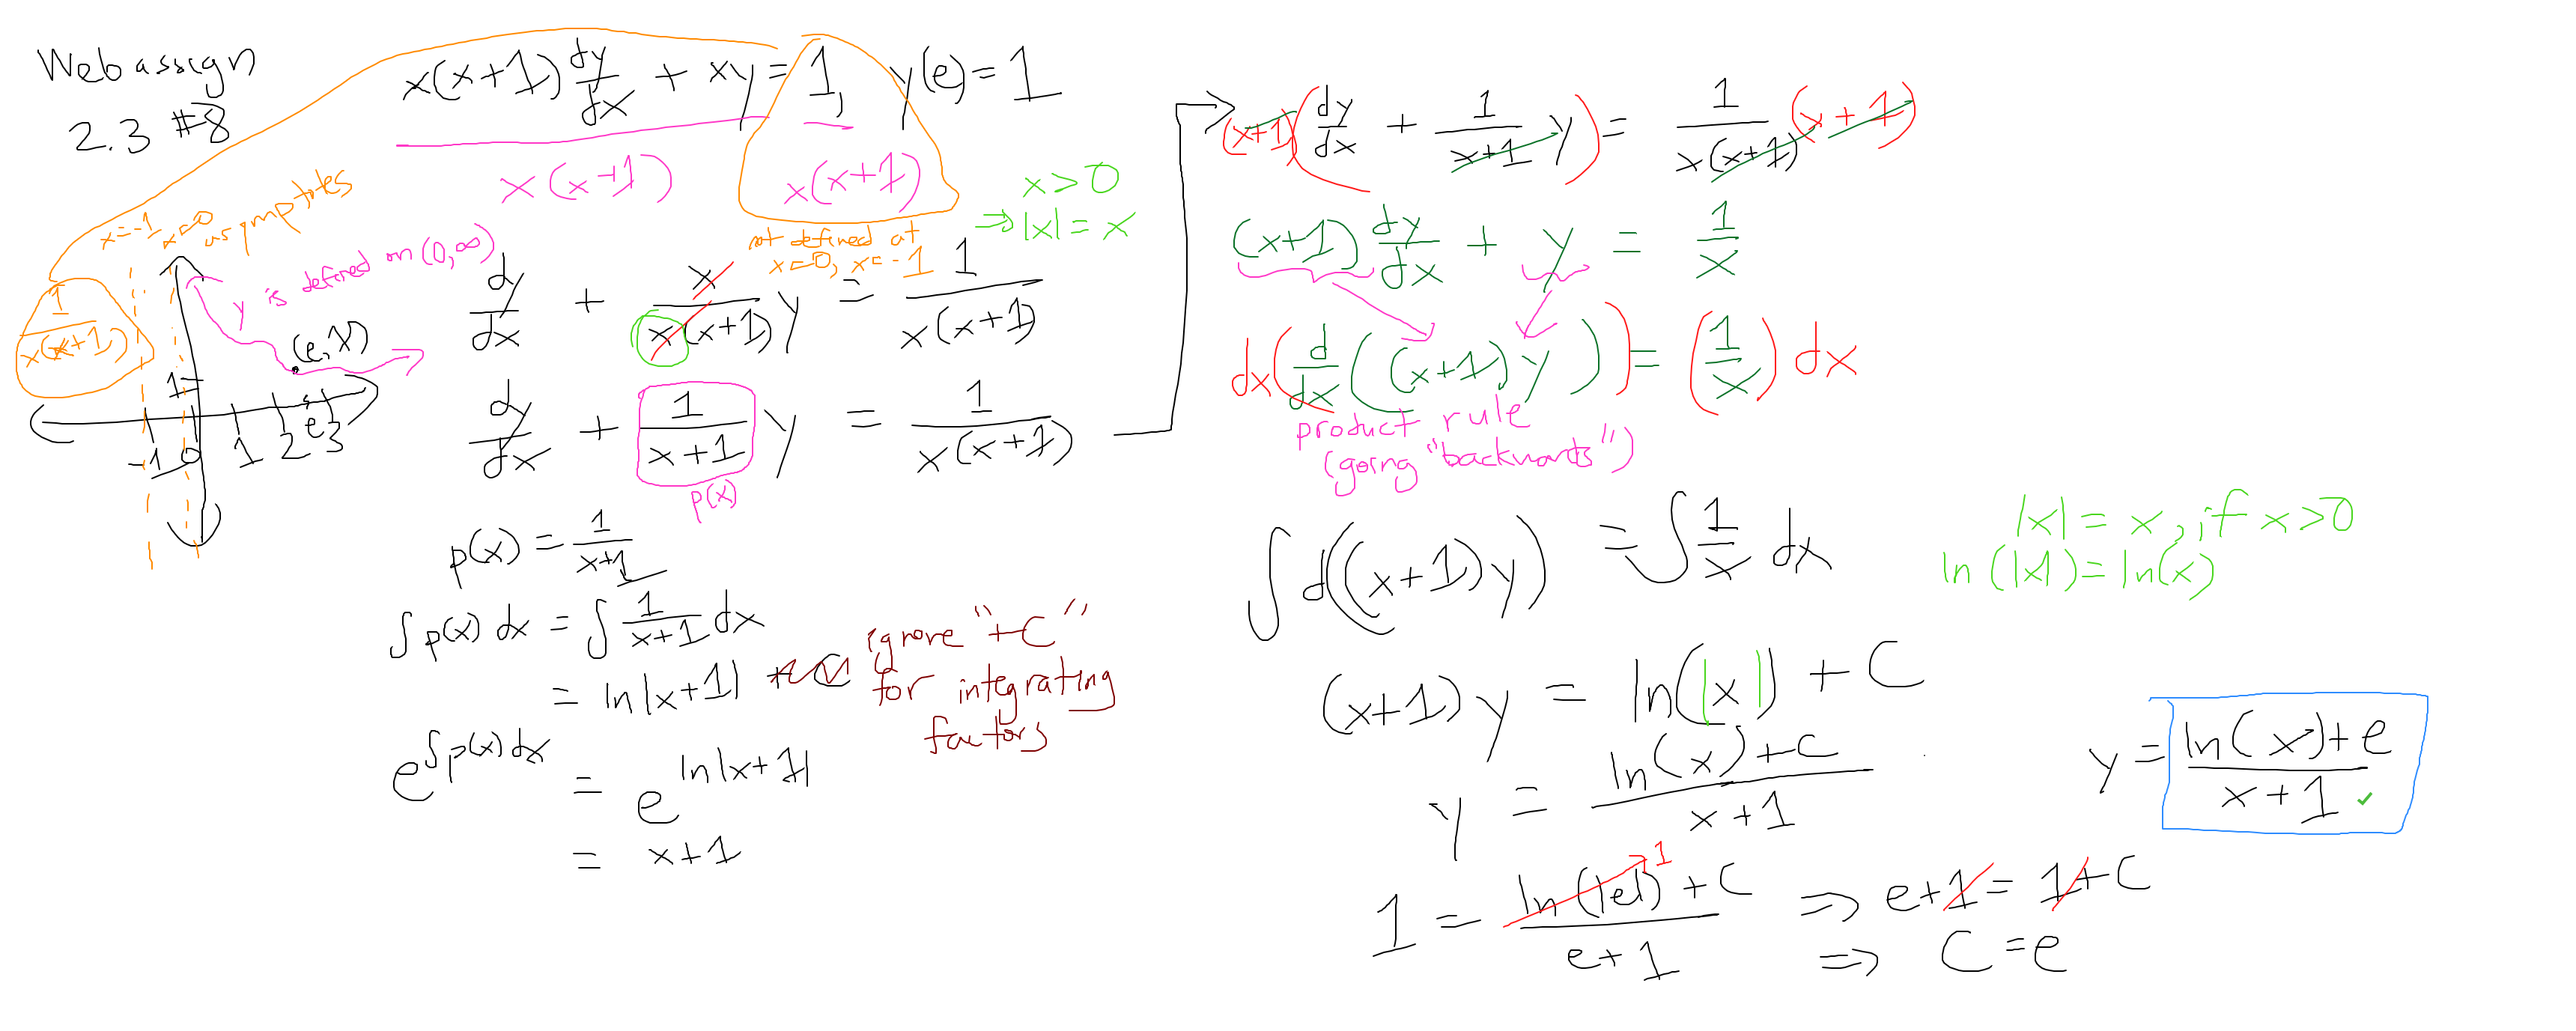 Webassign
2.3 #8
x(x+1) dy/dx + xy = 1, y(e) = 1
x(x+1)
x(x+1)
x>0
⇒ |x| = x
not defined at
x=0, x=-1
x=-1, x=0
asymptotes
y is defined on (0,∞)
1/(x(x+1))
(e,1)
1
-1 0 1 2 e 3
dy/dx + x/(x(x+1)) y = 1/(x(x+1))
dy/dx + 1/(x+1) y = 1/(x(x+1))
p(x)
p(x) = 1/(x+1)
∫p(x) dx = ∫ 1/(x+1) dx
= ln|x+1| + C
ignore "+C"
for integrating
factors
e^(∫p(x)dx) = e^(ln|x+1|)
= x+1
(x+1)(dy/dx + 1/(x+1) y) = 1/(x(x+1)) (x+1)
(x+1) dy/dx + y = 1/x
dx(d/dx((x+1)y)) = (1/x) dx
product rule
(going "backwards")
∫d((x+1)y) = ∫ 1/x dx
|x| = x, if x>0
ln(|x|) = ln(x)
(x+1)y = ln(|x|) + C
y = (ln(x)+C)/(x+1)
1 = (ln(|e|) + C)/(e+1) ⇒ e+1 = 1+C
1
⇒ C = e
y = (ln(x)+e)/(x+1) ✓